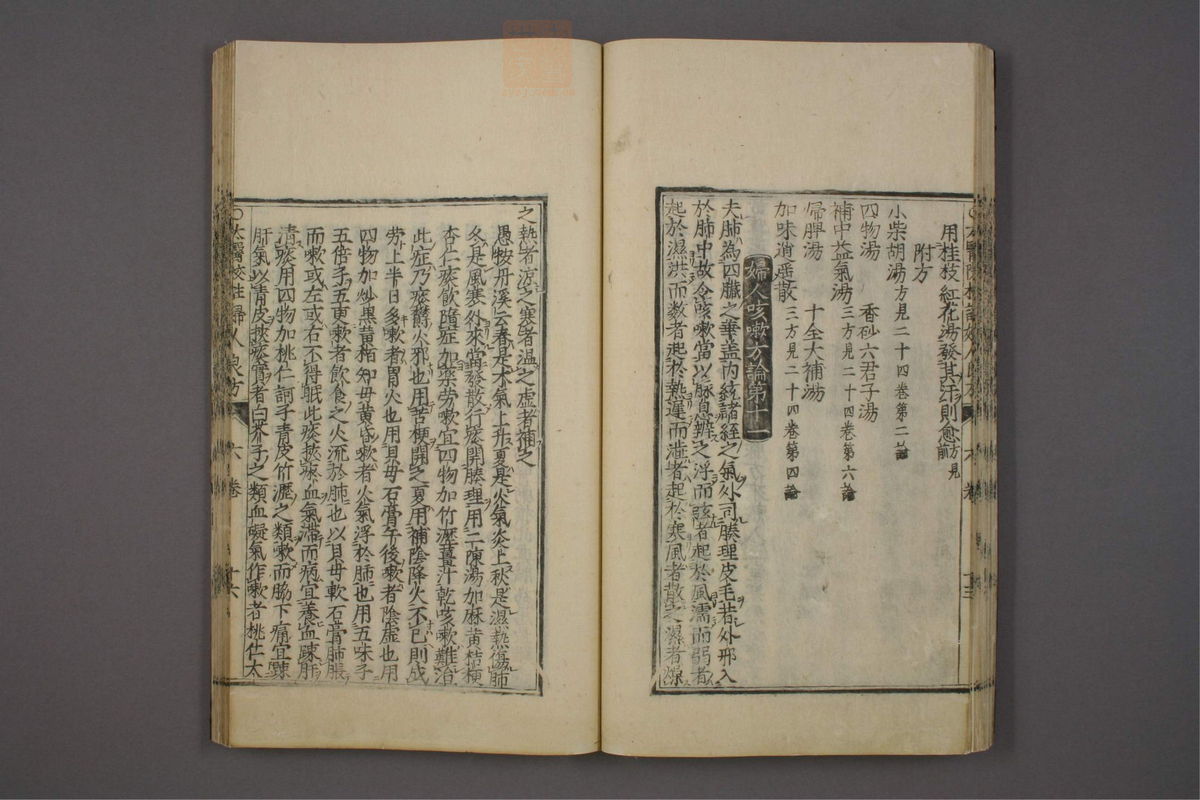 用桂枝紅花湯發其汗則愈方見前
附方
小柴胡湯方見二十四卷第二論
四物湯 香砂六君子湯
補中益氣湯三方見二十四卷第六論
歸脾湯 十全大補湯
加味逍遥散三方見二十四卷第四論
婦人咳嗽方論第十一
夫肺為四臟之華盖内統諸經之氣外司腠理皮毛若外邪入
於肺中故令咳嗽當以脉息辨之浮而該者起於風濡而弱者
起於濕洪而数者起於熱遲而澁者起於寒風者散之濕者燥
之熱者凉之寒者温之虚者補之
愚按丹溪云春是木氣上升夏是火氣炎上秋是濕熱傷肺
冬是風寒外來當發散行痰開腠理用二陳湯加麻黄桔梗
杏仁痰飲隨症加藥劳嗽宜四物加竹瀝薑汁乾咳嗽難治
此症乃痰欝火邪也用苦梗開之夏用補陰降火不已則成
劳上半日多嗽者胃火也用貝母石膏午後嗽者陰虚也用
四物加炒黒黄栢知母黄昏嗽者火氣浮於肺也用五味子
五倍子五更嗽者飲食之火流於肺也以貝母軟石膏肺脹
而嗽或左或右不得眠此痰挾瘀血氣滞而病宜養血踈肝
清痰用四物加桃仁訶子青皮竹瀝之類嗽而脇下痛宜踈
肝氣以青皮挾痰實者白芥子之類血礙氣作嗽者桃仁大
〇太醫院校註婦人良方 六卷 十六